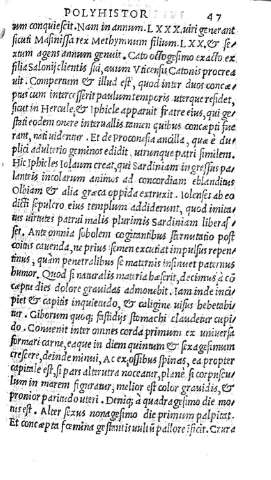 POLYHISTOR
47
um conquiescit. Nam in annum. LXXX. viri generant
sicuti Masinissa rex Methymnum filium. LXX & se
xtum agens annum genuit. Cato octogesimo exacto ex
filia Salonij clientis sui, auum Vticensis Catonis procrea
uit. Compertum & illud est, quod inter duos concæ
ptus cum intercesserit paulum temporis uterque residet,
sicut in Hercule, & Iphicle apparuit fratre eius, qui ge
stati eodem onere interuallis tamen quibus concæpti fue
rant, nati uidentur. Et de Proconesia ancilla, quæ è du
plici adulterio geminos edidit, utrunque patri similem.
Hic Iphicles Iolaum creat, qui Sardiniam ingressus pa
lantes incolarum animos ad concordiam eblanditus
Olbiam & alia græca oppida extruxit. Iolenses ab eo
dicti sepulcro eius templum addiderunt, quod imita
tus uirtutes patrui malis plurimis Sardiniam liberas
set. Ante omnia sobolem cogitantibus sternutatio post
coitus cauenda, ne prius semen excutiat impulsus repen
tinus, quàm penetralibus se maternis insinuet paternus
humor. Quod si naturalis materia hæserit, decimus à cō
cæptu dies dolore grauidas admonebit. Iam inde inci
piet & capitis inquietudo, & caligine uisus hebetabi
tur. Ciborum quoque fastidijs stomachi claudetur cupi
do. Conuenit inter omnes corda primum ex uniuersa
formari carne, eaque in diem quintum & sexagesimum
crescere, deinde minui, Ac ex ossibus spinas, ea propter
capitale est, si pars alterutra noceatur, planè si corpuscu
lum in marem figuratur, melior est color grauidis, &
pronior partitudo uteri. Denique à quadragesimo die mo
tus est. Alter sexus nonagesimo die primum palpitat.
Et concæpta fœmina gestantis uultū pallore īficit. Crura